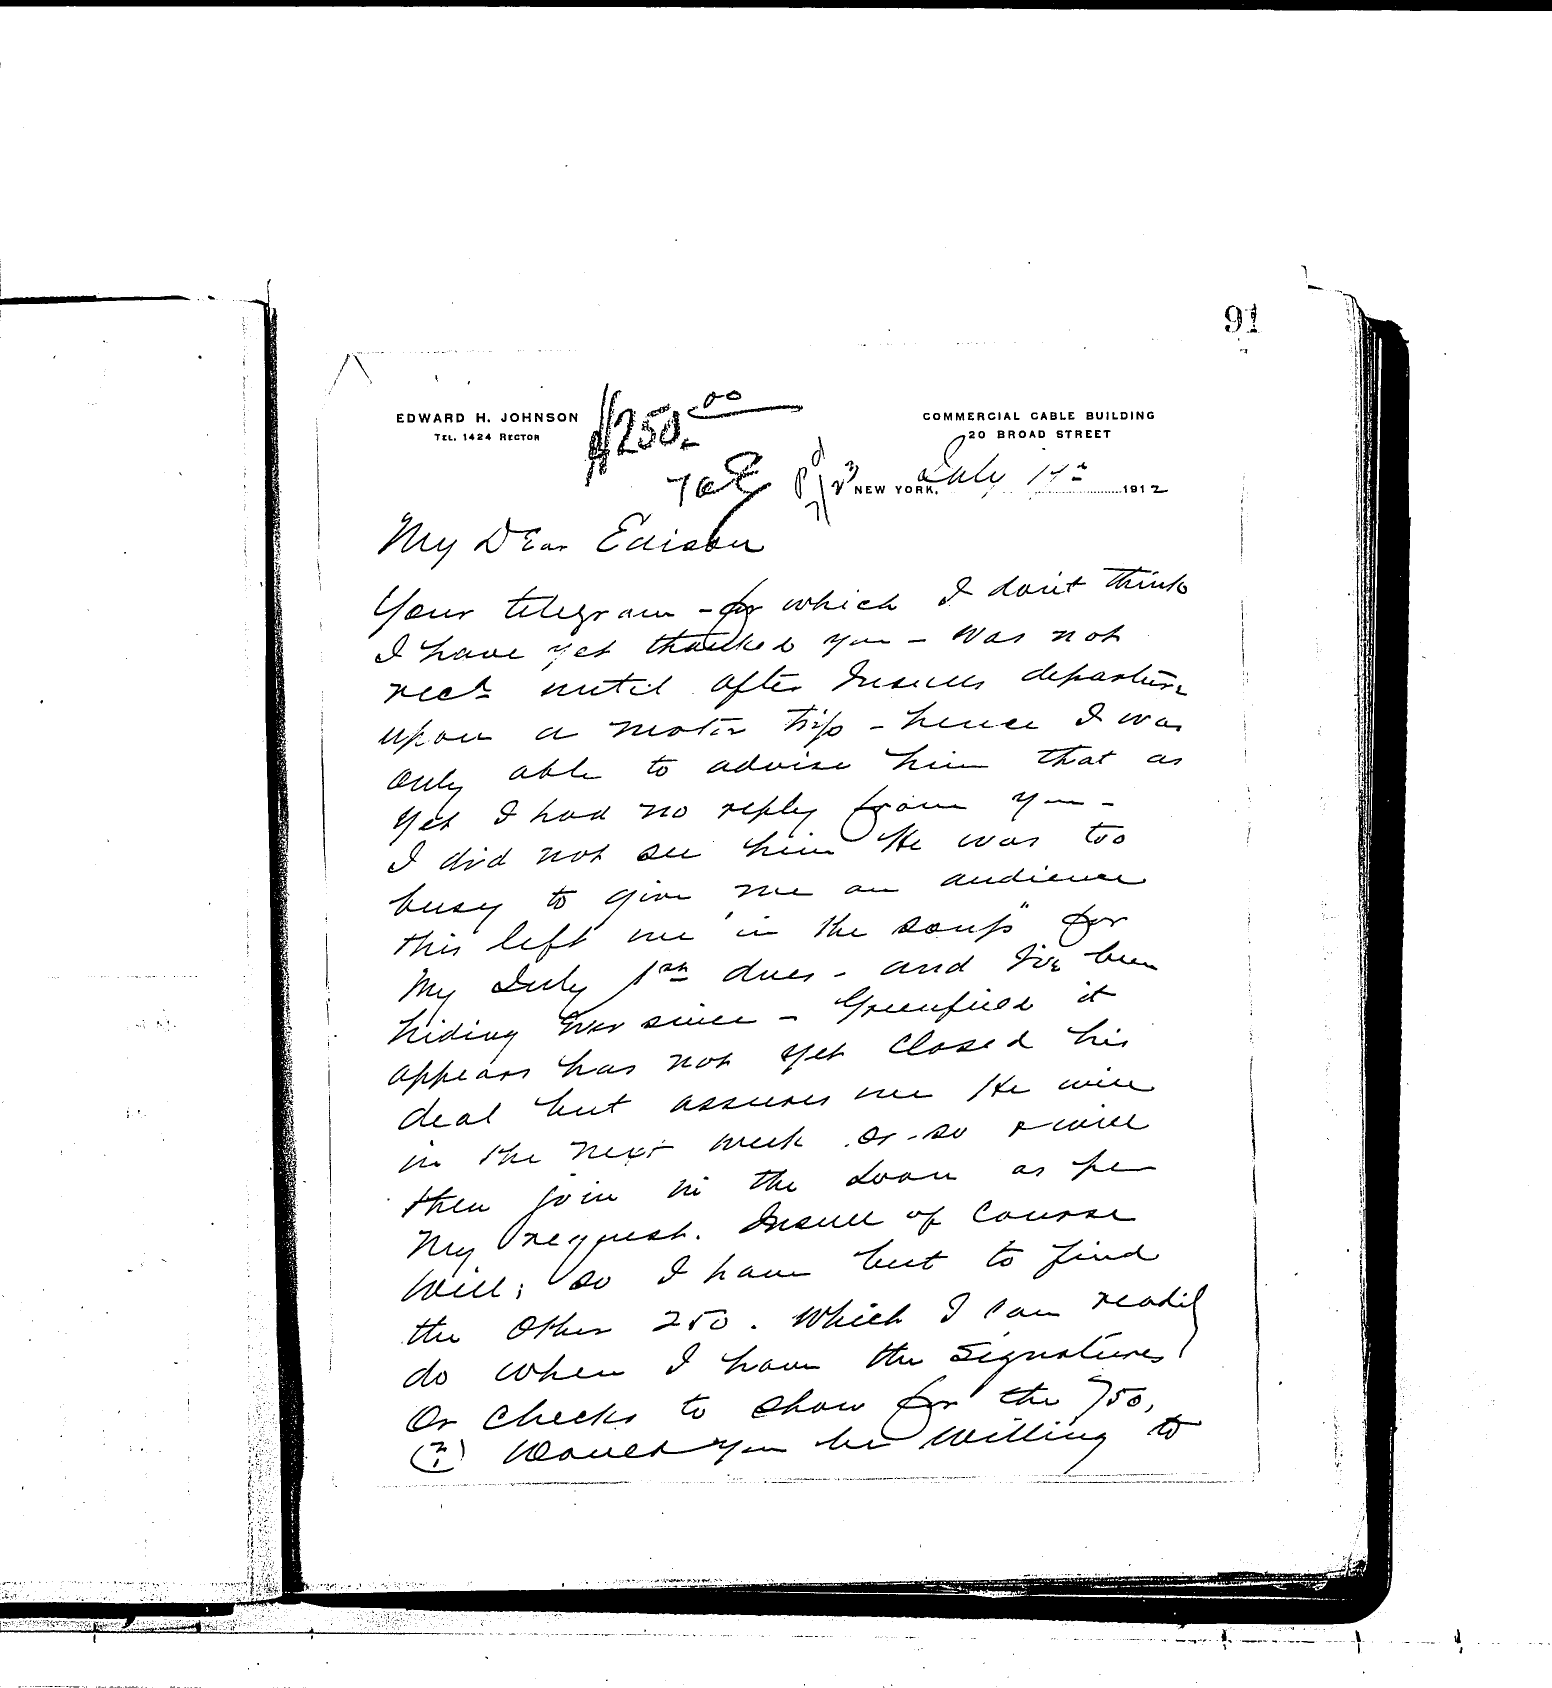 91
EDWARD H. JOHNSON
TEL. 1424 RECTOR
COMMERCIAL CABLE BUILDING
20 BROAD STREET
$250.00
TAE
Pd 7/23
NEW YORK, July 1912
My Dear Edison
Your telegram - for which I don't think
I have yet thanked you - was not
recd until after Insulls departure
upon a motor trip - hence I was
only able to advise him that as
yet I had no reply from you -
I did not see him He was too
busy to give me an audience
this left me "in the soup" for
My July 1st dues - and I've been
hiding Ever since - Greenfield it
appears has not yet closed his
deal but assures me He will
in the next week or so & will
then join in the Loan as per
My request. Insull of course
Will; so I have but to find
the Other 250. Which I can readily
do when I have the signatures
Or checks to show for the 750,
(?) Would you be Willing to